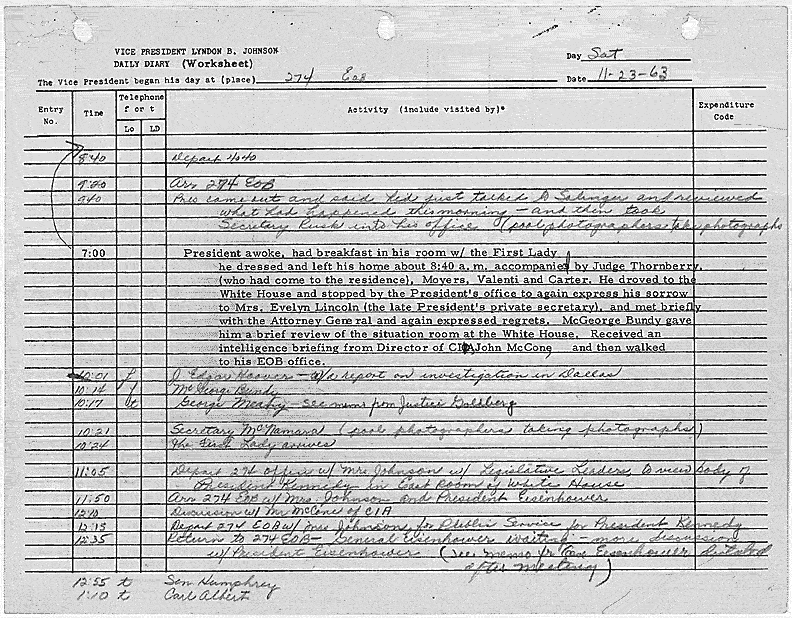 VICE PRESIDENT LYNDON B. JOHNSON
DAILY DIARY (Worksheet)
Day Sat
The Vice President began his day at (place) 274 EOB Date 11-23-63
Entry No. Time Telephone f or t Lo LD Activity (include visited by)* Expenditure Code
8:40 Depart 4040
9:20 Arr 274 EOB
940 Pres came out and said he'd just talked to Salinger and reviewed
what had happened this morning - and then took
Secretary Rusk into his office (pool photographers take photographs
7:00 President awoke, had breakfast in his room w/ the First Lady
he dressed and left his home about 8:40 a.m. accompanied by Judge Thornberry,
(who had come to the residence), Moyers, Valenti and Carter. He droved to the
White House and stopped by the President's office to again express his sorrow
to Mrs. Evelyn Lincoln (the late President's private secretary), and met briefly
with the Attorney General and again expressed regrets. McGeorge Bundy gave
him a brief review of the situation room at the White House. Received an
intelligence briefing from Director of CIA John McCone and then walked
to his EOB office.
10:01 f J Edgar Hoover - w/a report on investigation in Dallas
10:14 f McGeorge Bundy
10:17 t George Meany - see memo from Justice Goldberg
10:21 Secretary McNamara (pool photographers taking photographs)
10:24 The First Lady arrives
11:05 Depart 274 office w/ Mrs Johnson w/ Legislative Leaders, to view body of
President Kennedy in East Room of White House
11:50 Arr 274 EOB w/ Mrs. Johnson and President Eisenhower
12:10 Discussion w/ Mr McCone of CIA
12:15 Depart 274 EOB w/ Mrs Johnson, for Public Service for President Kennedy
12:35 Return to 274 EOB - General Eisenhower waiting - more discussion
w/ President Eisenhower (see memo fr Gen Eisenhower dictated
after meeting)
12:55 t Sen Humphrey
1:10 t Carl Albert